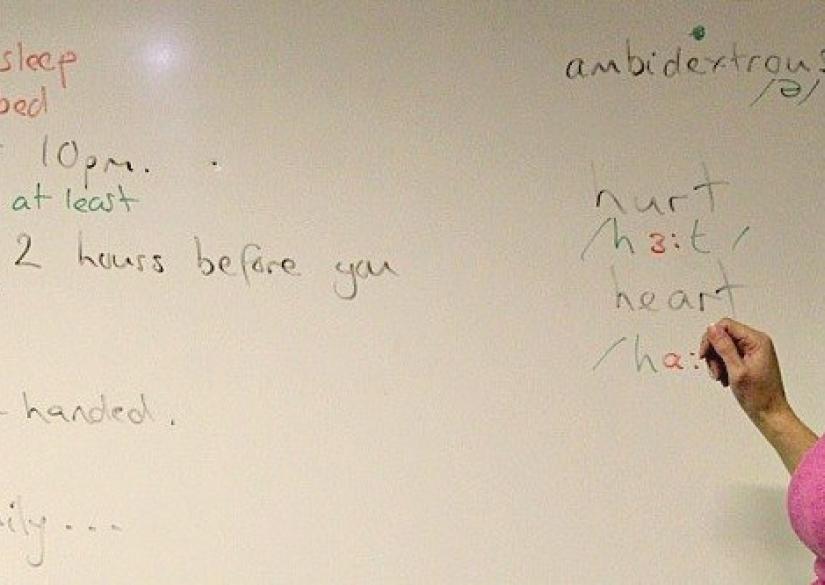 sleep
bed
10pm.
at least
2 hours before you
- handed.
ily...
ambidextrous
/ə/
hurt
/hɜ:t/
heart
/hɑ: